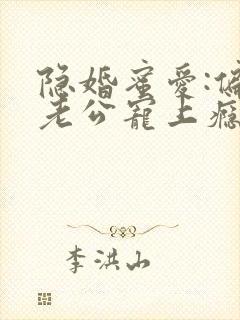 隐婚蜜爱:偏
老公宠上瘾
李洪山